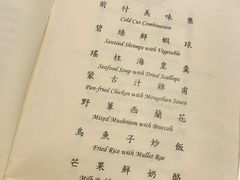 前 付 美 味 集
Cold Cut Combination
碧 綠 鮮 蝦 球
Sautéed Shrimps with Vegetable
瑤 柱 海 皇 羹
Seafood Soup with Dried Scallops
蒙 古 汁 雞 甫
Pan-fried Chicken with Mongolian Sauce
野 蕈 西 蘭 花
Mixed Mushroom with Broccoli
烏 魚 子 炒 飯
Fried Rice with Mullet Roe
芒 果 鮮 奶 酪